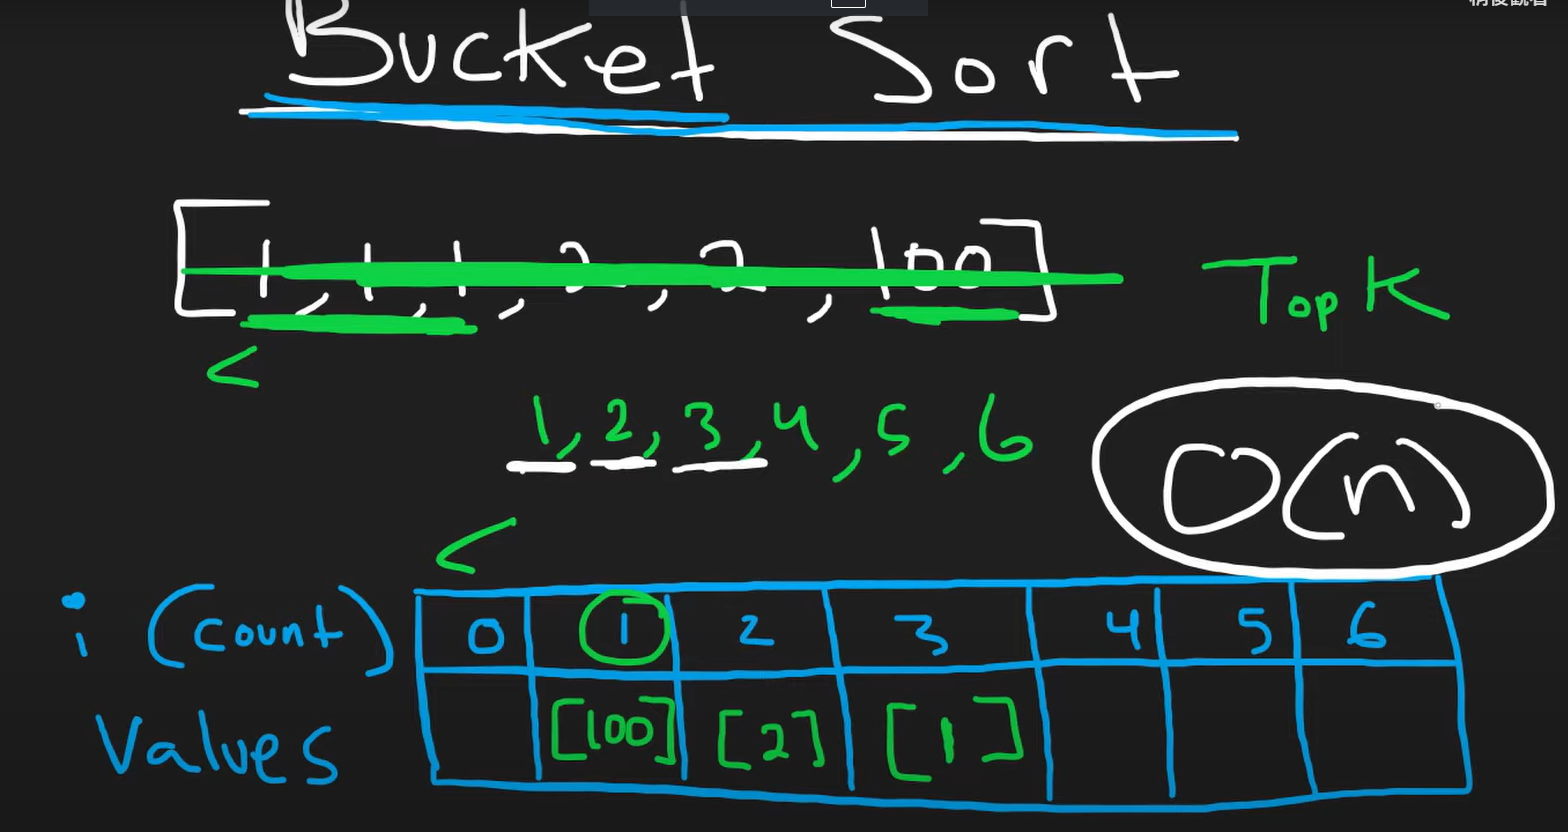 稍後觀看
Bucket Sort
[1, 1, 1, 2, 2, 100]
Top K
<
1, 2, 3, 4, 5, 6
O(n)
<
i (count) 0 1 2 3 4 5 6
Values [100] [2] [1]